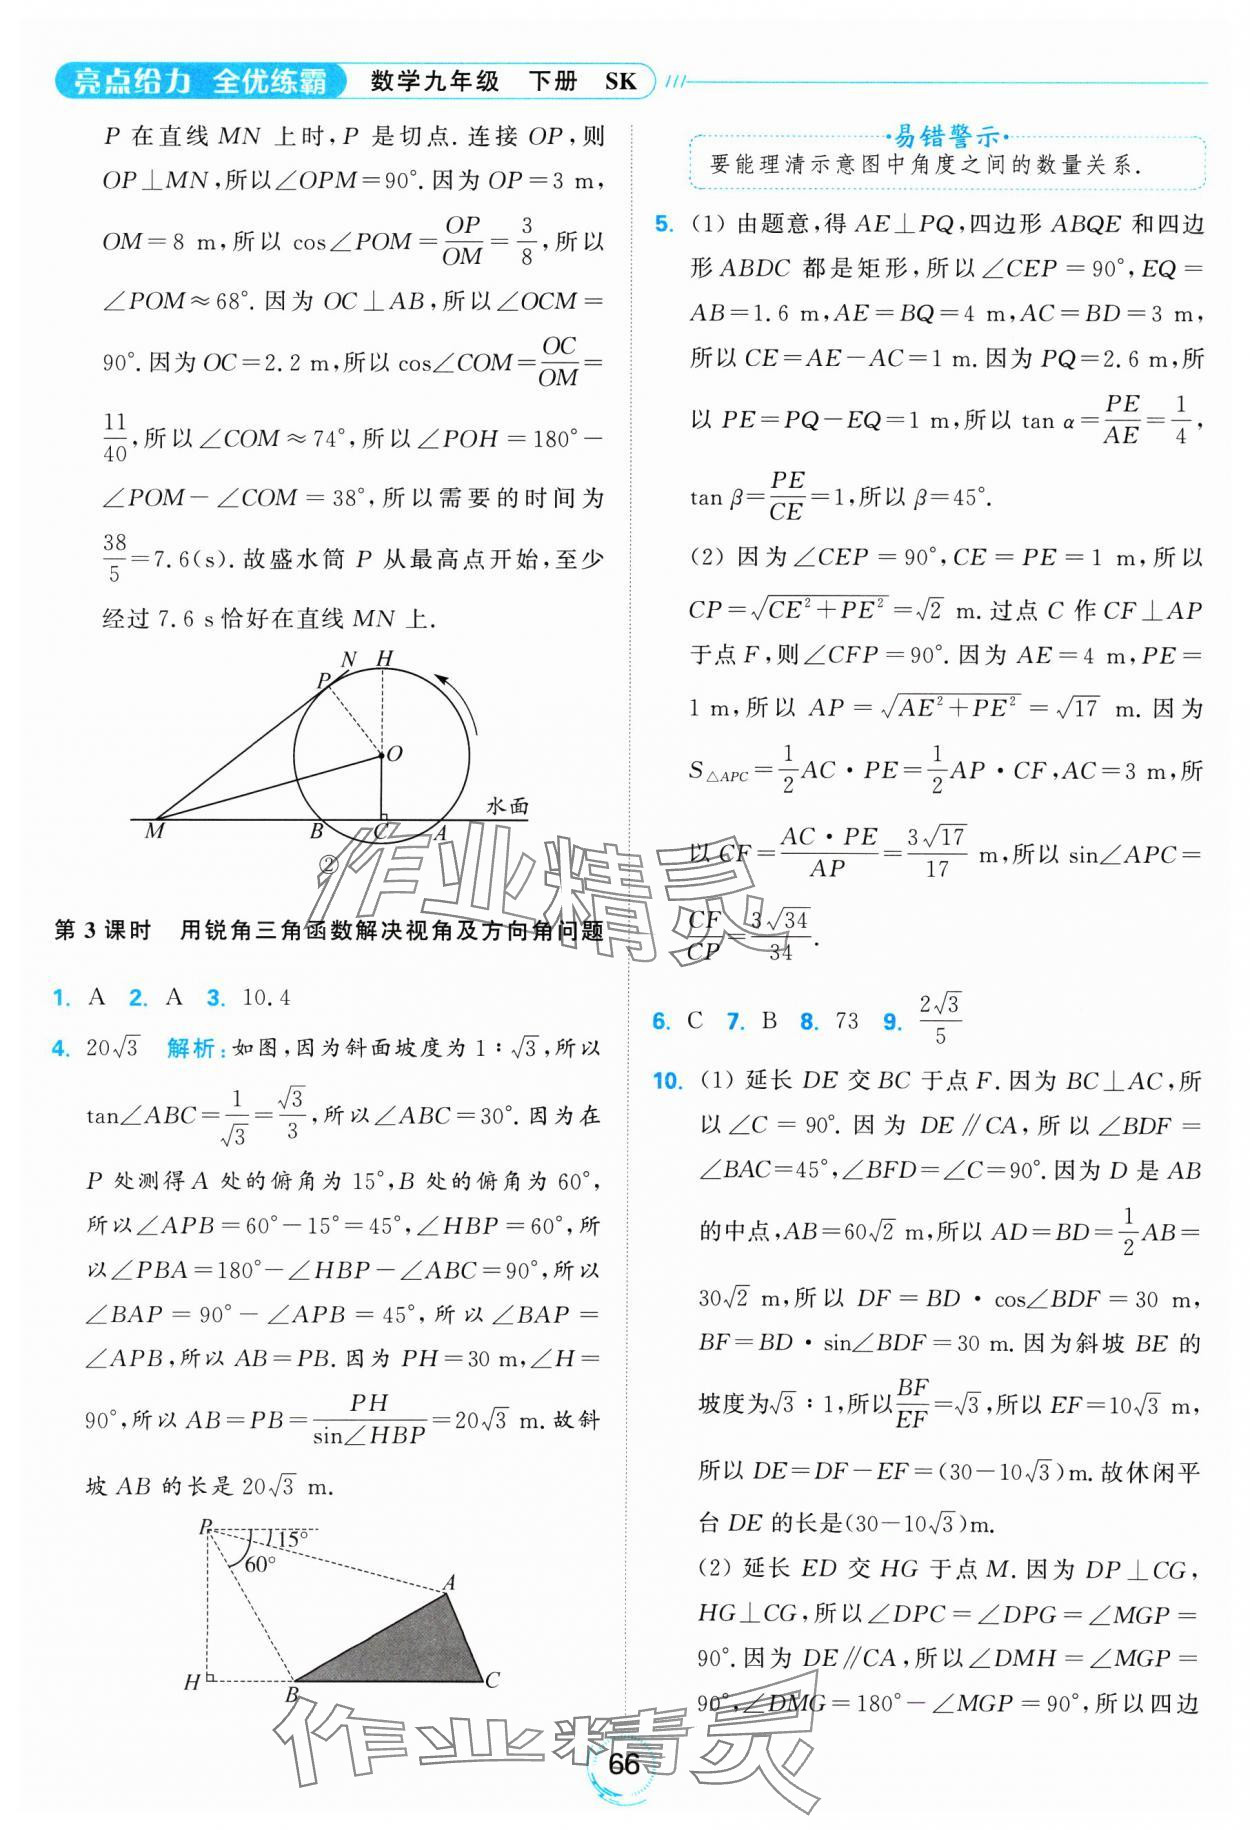 亮点给力 全优练霸 数学九年级 下册 SK
P 在直线 MN 上时,P 是切点.连接 OP,则
OP⊥MN,所以∠OPM=90°.因为 OP=3 m,
OM=8 m,所以 cos∠POM=OP/OM=3/8,所以
∠POM≈68°.因为 OC⊥AB,所以∠OCM=
90°.因为 OC=2.2 m,所以 cos∠COM=OC/OM=
11/40,所以∠COM≈74°,所以∠POH=180°-
∠POM-∠COM=38°,所以需要的时间为
38/5=7.6(s).故盛水筒 P 从最高点开始,至少
经过 7.6 s恰好在直线 MN 上.
N H
P
O
水面
M B C A
②
第 3 课时 用锐角三角函数解决视角及方向角问题
1. A 2. A 3. 10.4
4. 20√3 解析:如图,因为斜面坡度为 1∶√3,所以
tan∠ABC=1/√3=√3/3,所以∠ABC=30°.因为在
P 处测得 A 处的俯角为 15°,B 处的俯角为 60°,
所以∠APB=60°-15°=45°,∠HBP=60°,所
以∠PBA=180°-∠HBP-∠ABC=90°,所以
∠BAP=90°-∠APB=45°,所以∠BAP=
∠APB,所以 AB=PB.因为 PH=30 m,∠H=
90°,所以 AB=PB=PH/sin∠HBP=20√3 m.故斜
坡 AB 的长是 20√3 m.
P
15°
60°
A
H B C
·易错警示·
要能理清示意图中角度之间的数量关系.
5. (1) 由题意,得 AE⊥PQ,四边形 ABQE 和四边
形 ABDC 都是矩形,所以∠CEP=90°,EQ=
AB=1.6 m,AE=BQ=4 m,AC=BD=3 m,
所以 CE=AE-AC=1 m.因为 PQ=2.6 m,所
以 PE=PQ-EQ=1 m,所以 tan α=PE/AE=1/4,
tan β=PE/CE=1,所以 β=45°.
(2) 因为∠CEP=90°,CE=PE=1 m,所以
CP=√(CE²+PE²)=√2 m.过点 C 作 CF⊥AP
于点 F,则∠CFP=90°.因为 AE=4 m,PE=
1 m,所以 AP=√(AE²+PE²)=√17 m.因为
S△APC=1/2 AC·PE=1/2 AP·CF,AC=3 m,所
以 CF=AC·PE/AP=3√17/17 m,所以 sin∠APC=
CF/CP=3√34/34.
6. C 7. B 8. 73 9. 2√3/5
10. (1) 延长 DE 交 BC 于点 F.因为 BC⊥AC,所
以∠C=90°.因为 DE∥CA,所以∠BDF=
∠BAC=45°,∠BFD=∠C=90°.因为 D 是 AB
的中点,AB=60√2 m,所以 AD=BD=1/2 AB=
30√2 m,所以 DF=BD·cos∠BDF=30 m,
BF=BD·sin∠BDF=30 m.因为斜坡 BE 的
坡度为√3∶1,所以BF/EF=√3,所以 EF=10√3 m,
所以 DE=DF-EF=(30-10√3)m.故休闲平
台 DE 的长是(30-10√3)m.
(2) 延长 ED 交 HG 于点 M.因为 DP⊥CG,
HG⊥CG,所以∠DPC=∠DPG=∠MGP=
90°.因为 DE∥CA,所以∠DMH=∠MGP=
90°,∠DMG=180°-∠MGP=90°,所以四边
作业精灵
作业精灵
66